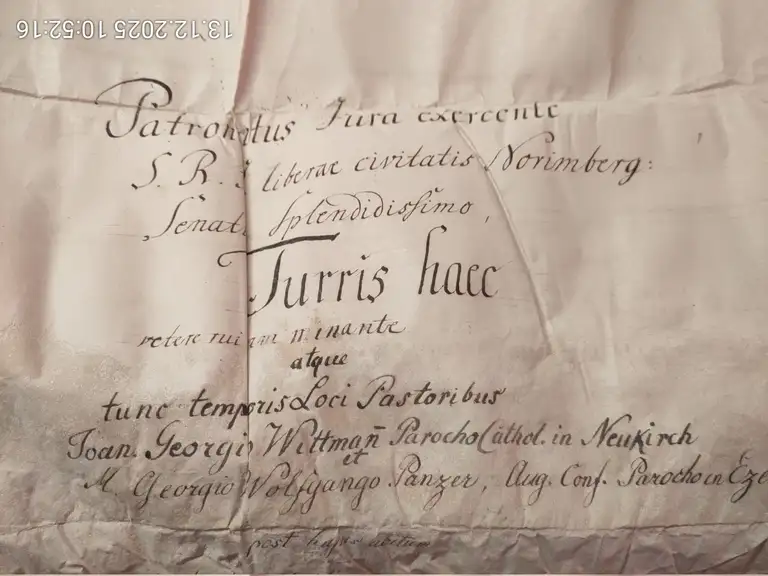 13.12.2025 10:52:16
Patronatus Jura exercente
S. R. I liberae civitatis Norimberg:
Senatu Splendidissimo,
Turris haec
vetere ruinam minante
atque
tunc temporis Loci Pastoribus
Joan. Georgio Wittman̄ Parocho Cathol. in Neukirch
et
M. Georgio Wolfgango Panzer, Aug. Conf. Parocho in Eze
post hujus abitum